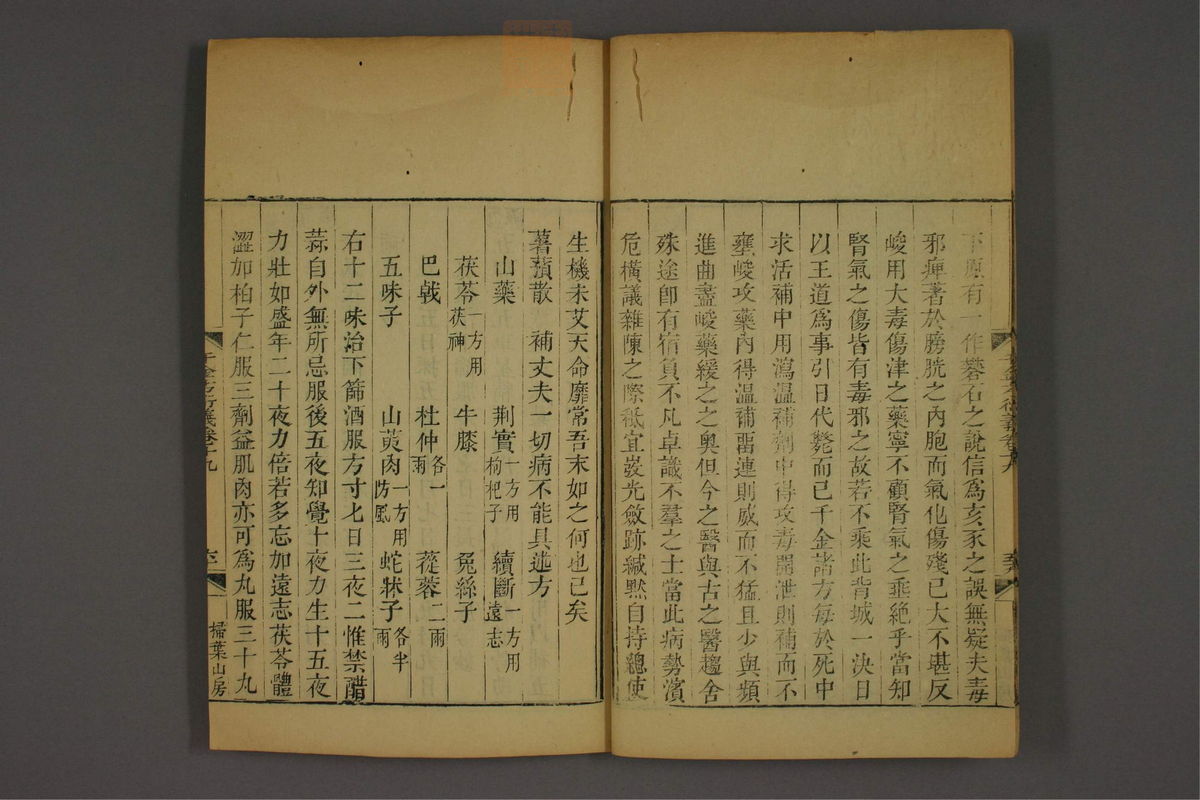 下原有一作蓉石之說信為亥豕之誤無疑夫毒
邪痺著於膀胱之內胞而氣化傷殘已大不堪反
峻用大毒傷津之藥寧不顧腎氣之乖絕乎當知
腎氣之傷皆有毒邪之故若不乘此背城一決日
以王道為事引日代斃而已千金諸方每於死中
求活補中用瀉溫補劑中得攻毒開泄則補而不
壅峻攻藥內得溫補留連則威而不猛且少與頻
進曲盡峻藥緩之之奧但今之醫與古之醫趨舍
殊途即有宿負不凡卓識不羣之士當此病勢濱
危橫議雜陳之際秪宜發光斂跡緘默自持總使
千金方衍義卷十九
生機未艾天命靡常吾末如之何也已矣
薯蕷散 補丈夫一切病不能具述方
山藥 荆實一方用枸杞子 續斷一方用遠志
茯苓一方用茯神 牛膝 兔絲子
巴戟 杜仲各一兩 蓯蓉二兩
五味子 山萸肉一方用防風 蛇牀子各半兩
右十二味治下篩酒服方寸七日三夜二惟禁醋
蒜自外無所忌服後五夜知覺十夜力生十五夜
力壯如盛年二十夜力倍若多忘加遠志茯苓體
澀加柏子仁服三劑益肌肉亦可為丸服三十九
千金方衍義卷十九
掃葉山房